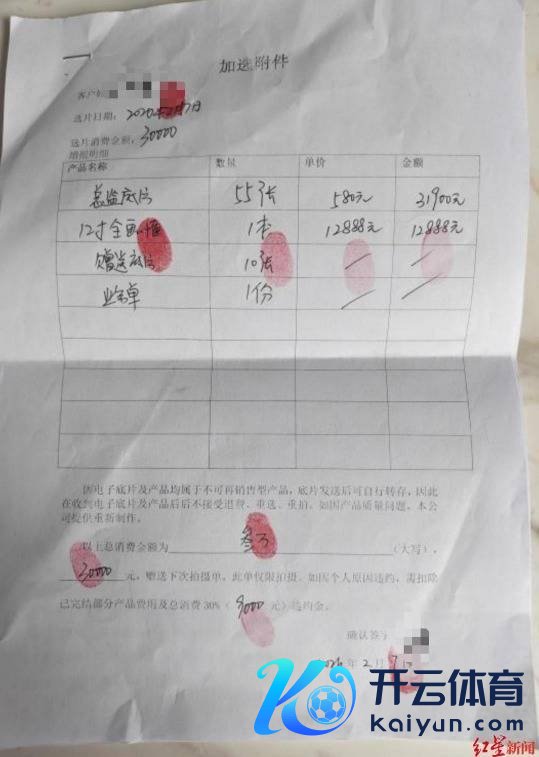 加选附件
客户姓
选片日期: 2020年2月7日
选片消费金额: 30000
增加明细
产品名称 数量 单价 金额
总监底片 55张 580元 31900元
12寸全画册 1本 12888元 12888元
赠送底片 10张 / /
1份 / /
因电子底片及产品均属于不可再销售型产品，底片发送后可自行转存，因此
在收到电子底片及产品后后不接受退费、重选、重拍。如因产品质量问题，本公
司提供重新制作。
以上总消费金额为 叁万 (大写),
30000 元，赠送下次拍摄单，此单仅限拍摄。如因个人原因违约，需扣除
已完结部分产品费用及总消费30%（9000元）违约金。
确认签字
年 2 月
开云体育
kaiyun.com
红星新闻